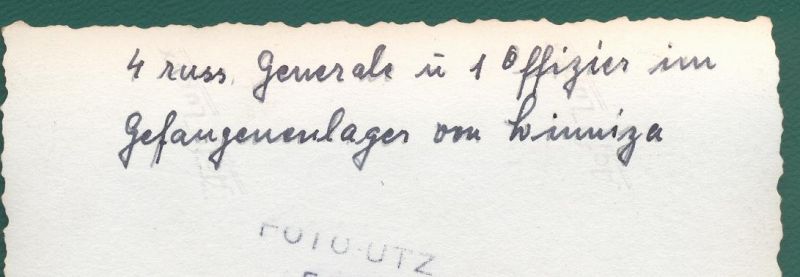 4 russ. Generale u 1 Offizier im
Gefangenenlager von Winniza
FOTO-UTZ